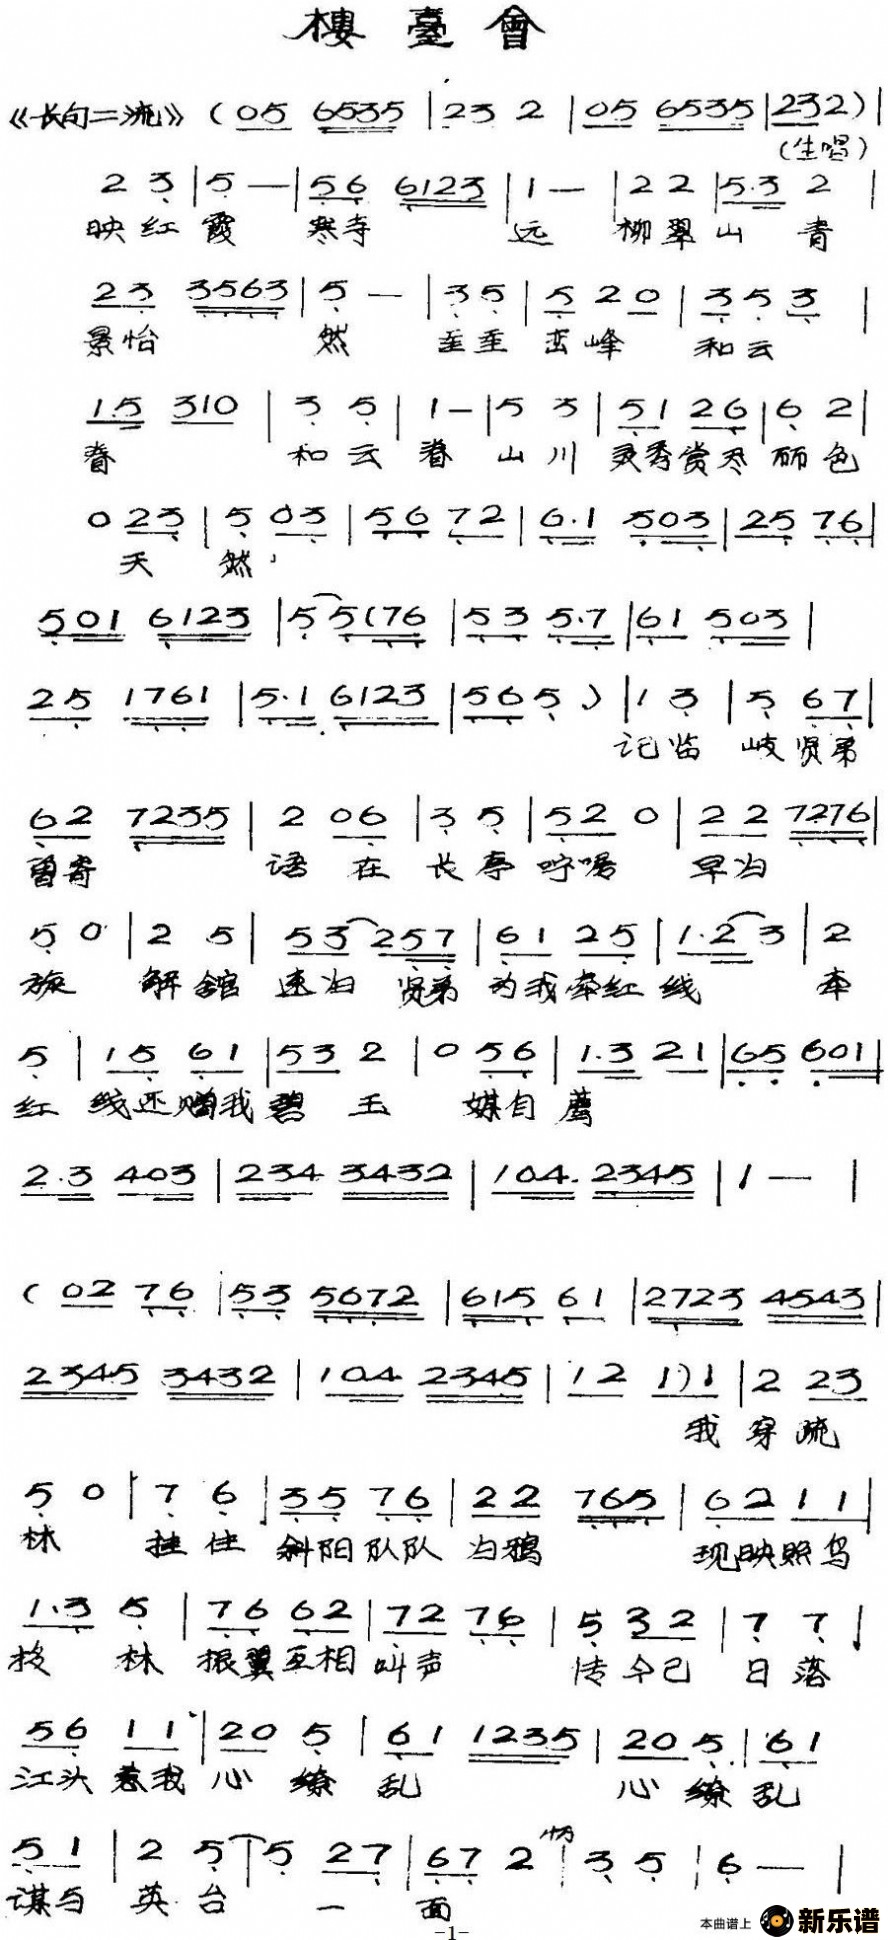 樓臺會
《长句二流》(05 6535 | 23 2 | 05 6535 | 232) |
(生唱)
2 3 | 5 — | 56 6123 | 1 — | 22 | 5·3 2 |
映红霞 寒寺 远 柳翠山 青
23 3563 | 5 — | 35 | 5 20 | 35 3 |
景怡 然 峦峰 和云
1·5 310 | 3 5 | 1 — | 5 3 | 51 26 | 6 2 |
眷 和云眷 山川 灵秀赏尽 丽色
0 23 | 5 03 | 56 72 | 6·1 503 | 25 76 |
天 然
501 6123 | 5 5(76 | 53 5·7 | 61 503 |
25 1761 | 5·1 6123 | 565) | 1 3 | 5 67 |
记临 岐贤弟
62 7235 | 2 06 | 3 5 | 52 0 | 22 7276 |
曾寄 语在 长亭 咛嘱 早归
5 0 | 2 5 | 53 257 | 61 25 | 1·2 3 | 2
旋 解馆 速归 贤弟 为我牵红线 牵
5 | 15 61 | 53 2 | 0 56 | 1·3 21 | 65 601 |
红 线还赠我碧 玉 媒自荐
2·3 403 | 234 3432 | 104 2345 | 1 — |
(02 76 | 53 5672 | 615 61 | 2723 4543 |
2345 3432 | 104 2345 | 12 1)1 | 2 23
我穿疏
5 0 | 7 6 | 35 76 | 22 765 | 62 11 |
林 挂住 斜阳队队 归鸦 现映照鸟
1·3 5 | 76 62 | 72 76 | 5 32 | 7 7 |
投 林 振翼互相 叫声 传今已 日落
56 11 | 20 5 | 61 1235 | 20 5 | 61
江头惹我 心 缭 乱 心 缭乱
51 | 2 5 | 5 27 | 67 2 | 3 5 | 6 — |
谋与 英台 一 面
-1-
本曲谱上 新乐谱